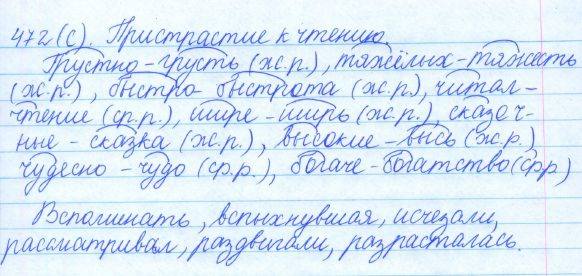 472 (с). Пристрастие к чтению.
Грустно - грусть (ж.р.), тяжёлых - тяжесть
(ж.р.), быстро - быстрота (ж.р.), читал -
чтение (ср.р.), шире - ширь (ж.р.), сказоч-
ные - сказка (ж.р.), высокие - высь (ж.р.)
чудесно - чудо (ср.р.), богаче - богатство (срр)
Вспоминать, вспыхнувшая, исчезали,
рассматривал, раздвигали, разрасталась.